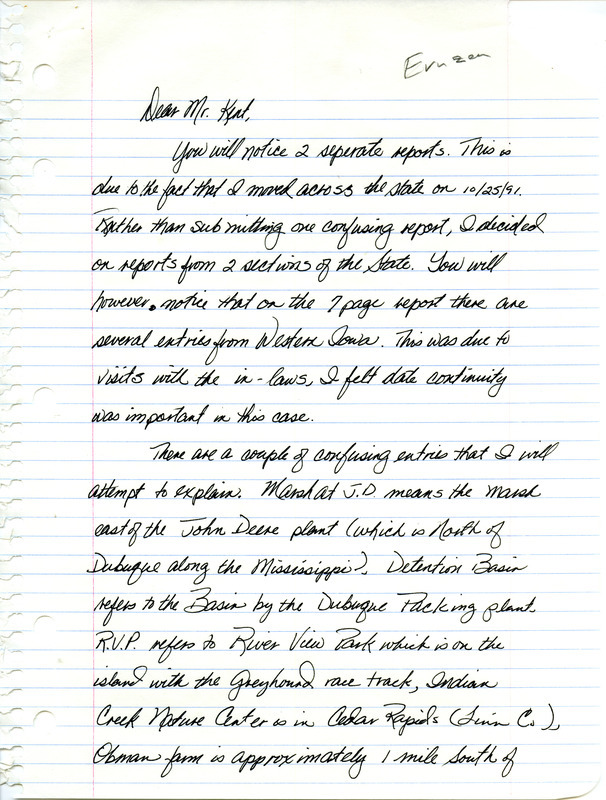 Eruzen
Dear Mr. Kent,
You will notice 2 seperate reports. This is
due to the fact that I moved across the state on 10/25/91.
Rather than submitting one confusing report, I decided
on reports from 2 sections of the State. You will
however, notice that on the 7 page report there are
several entries from Western Iowa. This was due to
visits with the in-laws, I felt date continuity
was important in this case.
There are a couple of confusing entries that I will
attempt to explain. Marsh at J.D. means the marsh
east of the John Deere plant (which is North of
Dubuque along the Mississippi), Detention Basin
refers to the Basin by the Dubuque Packing plant
R.V.P. refers to River View Park which is on the
island with the Greyhound race track, Indian
Creek Nature Center is in Cedar Rapids (Linn Co.),
Obman farm is approximately 1 mile South of